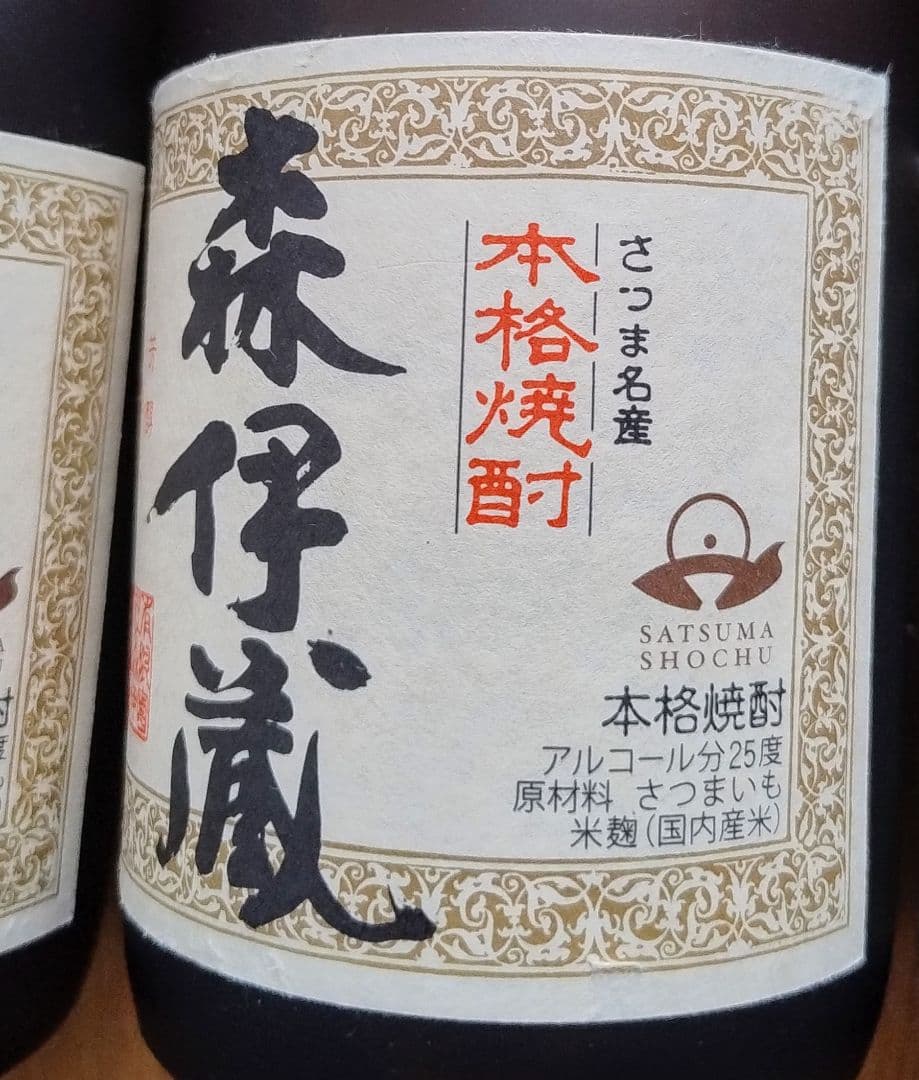 さつま名産
本格焼酎
森伊蔵
SATSUMA
SHOCHU
本格焼酎
アルコール分25度
原材料 さつまいも
米麹(国内産米)